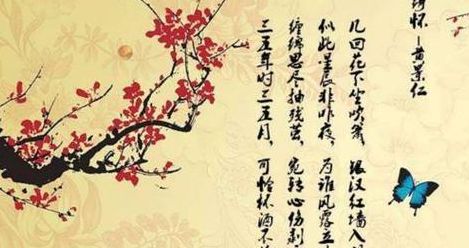 绮怀—黄景仁
几回花下坐吹箫，银汉红墙入望
似此星辰非昨夜，为谁风露立中
缠绵思尽抽残茧，宛转心伤剥
三五年时三五月，可怜杯酒不